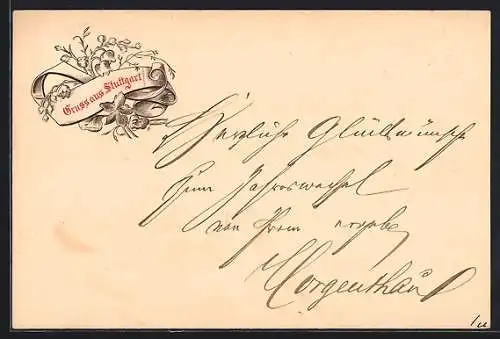 Gruss aus Stuttgart
Herzliche Glückwünsche
zum Jahreswechsel
von Ihrem
Morgenthau